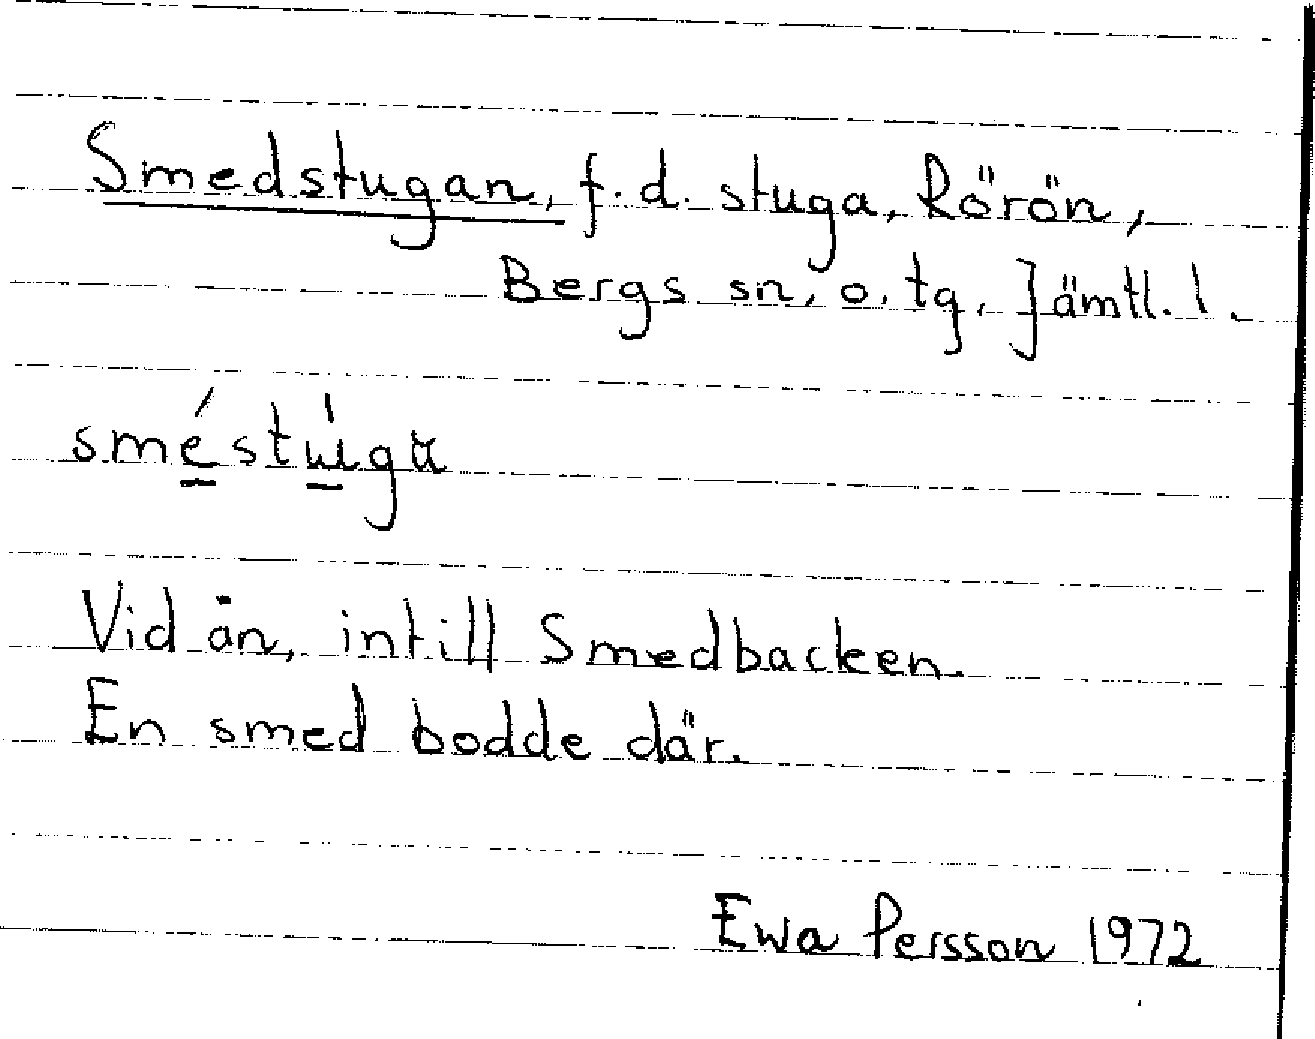 Smedstugan, f.d. stuga, Rörön,
Bergs sn. o. tg, Jämtl. l.
Vid ån, intill Smedbacken.
En smed bodde där.
Ewa Persson 1972